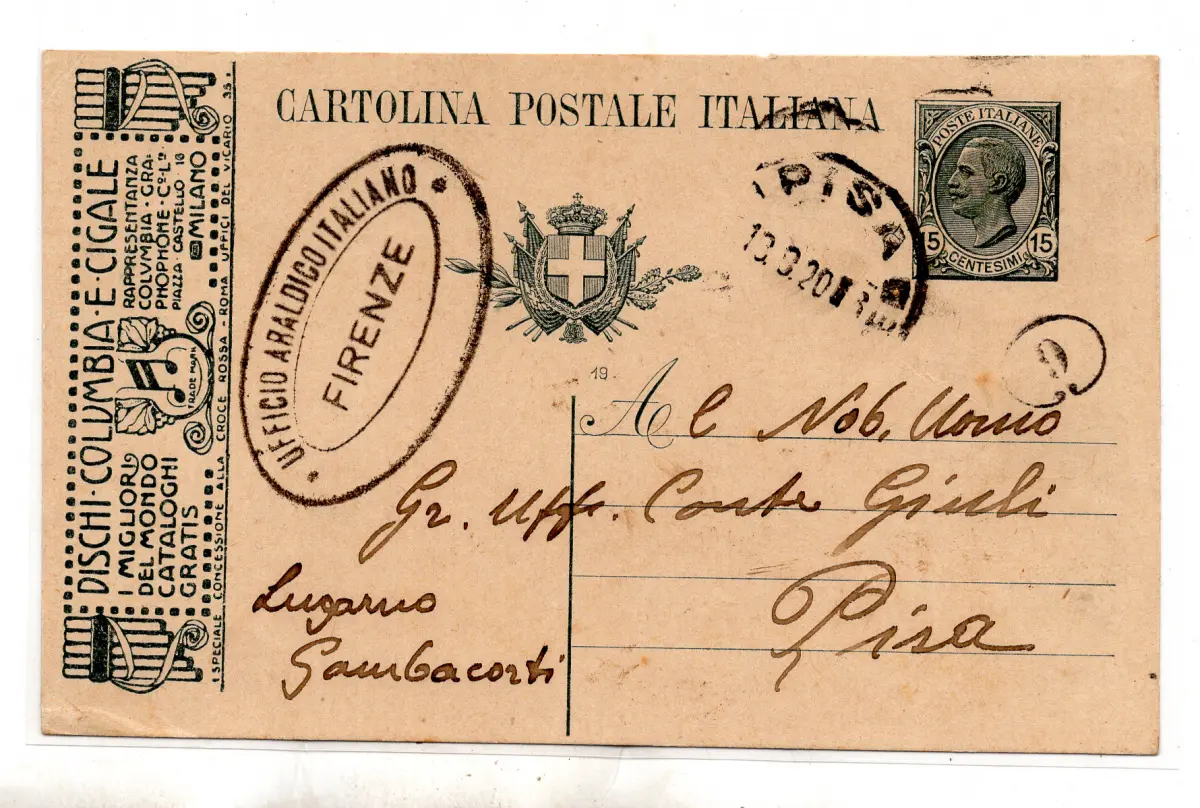 CARTOLINA POSTALE ITALIANA
POSTE ITALIANE
15 15
CENTESIMI
DISCHI·COLUMBIA·E·CIGALE
I MIGLIORI
DEL MONDO
CATALOGHI
GRATIS
TRADE MARK
RAPPRESENTANZA
COLVMBIA·GRA-
PHOPHONE·Cº·Lᵈ
PIAZZA·CASTELLO 16
MILANO
SPECIALE CONCESSIONE ALLA CROCE ROSSA - ROMA UFFICI DEL VICARIO 35
UFFICIO ARALDICO ITALIANO
FIRENZE
PISA
20
19
Al Nob. Uomo
Gr. Uff. Conte Giuli
Lugarno
Gambacorti
Pisa